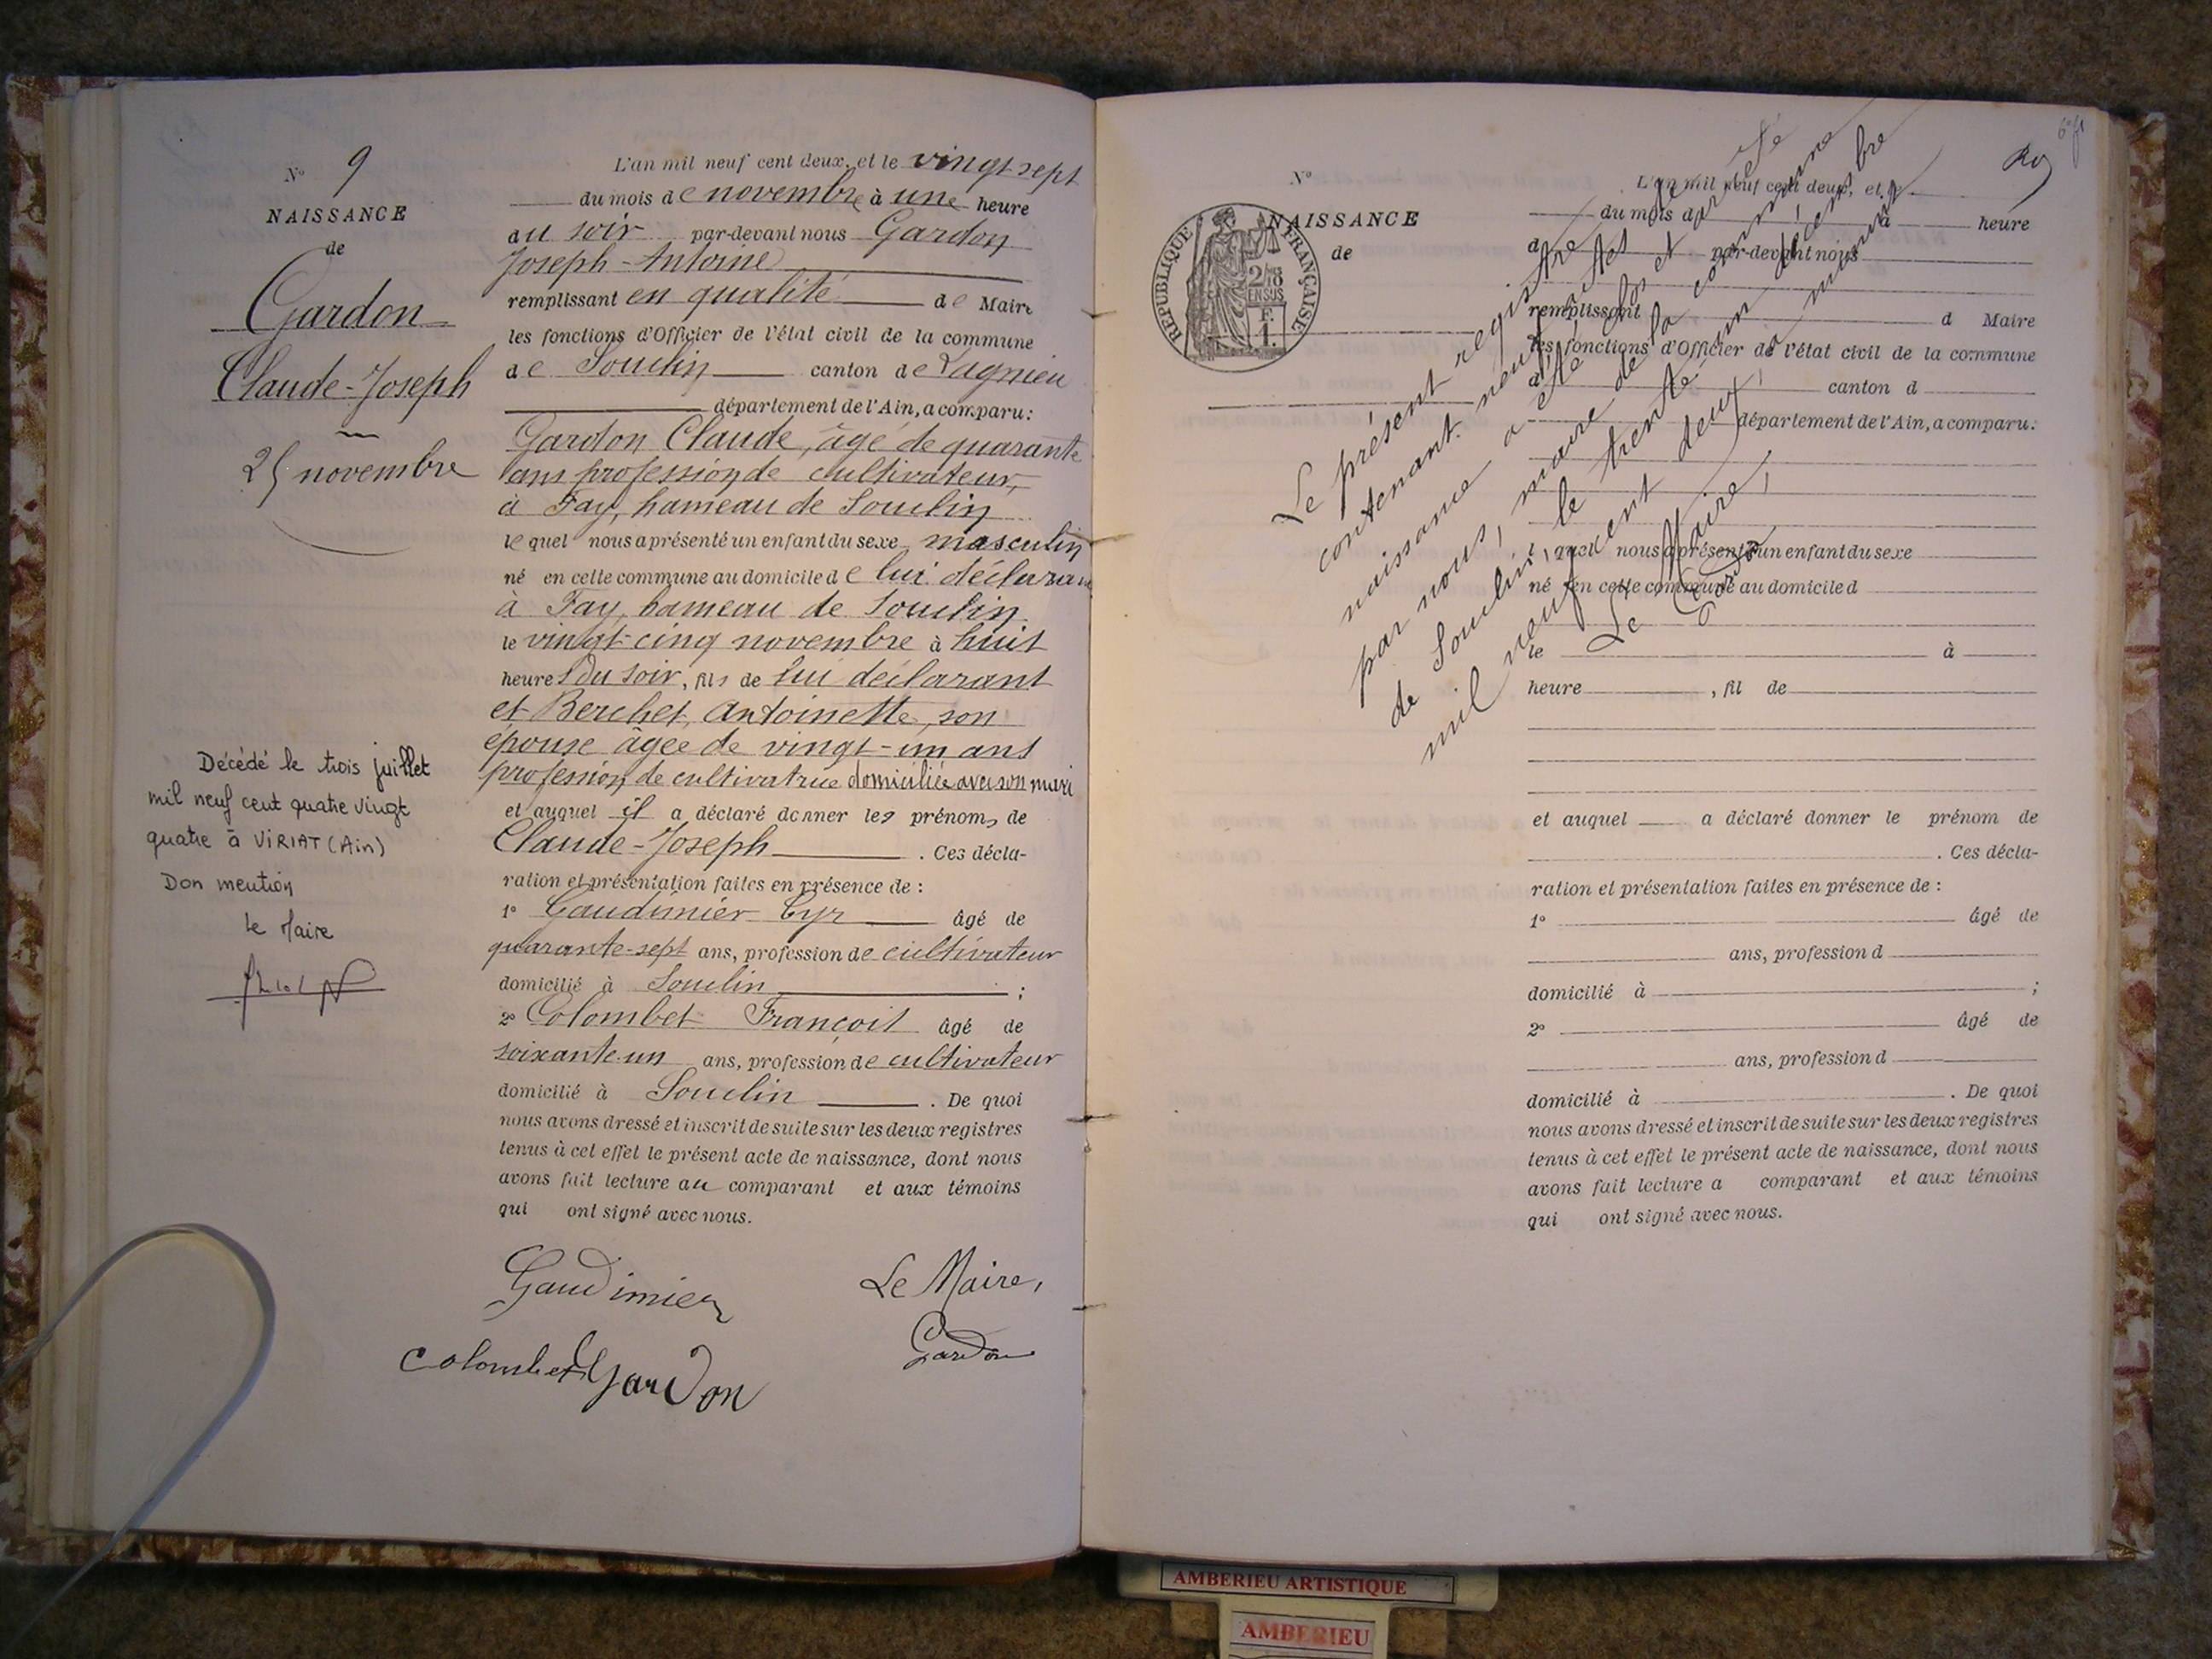 N° 9
NAISSANCE
de
Gardon
Claude-Joseph
25 novembre
Décédé le trois juillet
mil neuf cent quatre vingt
quatre à VIRIAT (Ain)
Don mention
le Maire
L'an mil neuf cent deux, et le vingt sept
du mois de novembre à une heure
du soir par-devant nous Gardon
Joseph-Antoine
remplissant en qualité de Maire
les fonctions d'Officier de l'état civil de la commune
de Souclin canton de Lagnieu
département de l'Ain, a comparu:
Gardon Claude, âgé de quarante
ans profession de cultivateur,
à Fay, hameau de Souclin
lequel nous a présenté un enfant du sexe masculin
né en cette commune au domicile de lui déclarant
à Fay, hameau de Souclin
le vingt-cinq novembre à huit
heures du soir, fils de lui déclarant
et Berchet, Antoinette, son
épouse âgée de vingt-un ans
profession de cultivatrice domiciliée avec son mari
et auquel il a déclaré donner les prénoms de
Claude-Joseph. Ces décla-
ration et présentation faites en présence de :
1° Gaudimier Cyr âgé de
quarante-sept ans, profession de cultivateur
domicilié à Souclin ;
2° Colombet François âgé de
soixante-un ans, profession de cultivateur
domicilié à Souclin. De quoi
nous avons dressé et inscrit de suite sur les deux registres
tenus à cet effet le présent acte de naissance, dont nous
avons fait lecture au comparant et aux témoins
qui ont signé avec nous.
Gaudimier Le Maire,
Colombet Gardon Gardon
N°
NAISSANCE
de
RÉPUBLIQUE FRANÇAISE
2/18
EN SUS
F.
1.
L'an mil neuf cent deux, et le
du mois d à heure
d par-devant nous
remplissant d Maire
les fonctions d'Officier de l'état civil de la commune
d canton d
département de l'Ain, a comparu:
l quel nous a présenté un enfant du sexe
né en cette commune au domicile d
le à
heure , fil de
et auquel a déclaré donner le prénom de
. Ces décla-
ration et présentation faites en présence de :
1° âgé de
ans, profession d
domicilié à ;
2° âgé de
ans, profession d
domicilié à . De quoi
nous avons dressé et inscrit de suite sur les deux registres
tenus à cet effet le présent acte de naissance, dont nous
avons fait lecture a comparant et aux témoins
qui ont signé avec nous.
Le présent registre
contenant neuf actes de
naissance a été clos et arrêté
par nous, maire de la commune
de Souclin, le trente un décembre
mil neuf cent deux, à minuit
Le Maire,
Gardon
AMBERIEU ARTISTIQUE
AMBERIEU